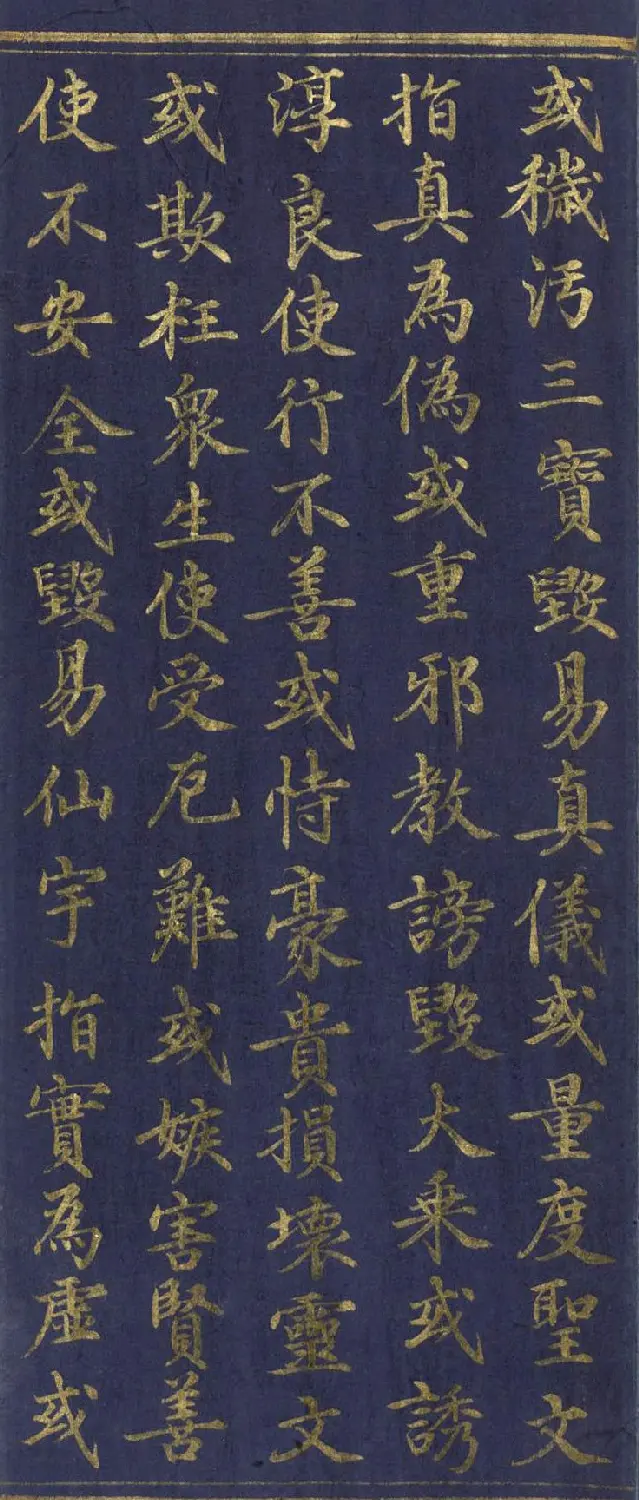 或穢污三寶毀易真儀或量度聖文
指真為偽或重邪教謗毀大乘或誘
淳良使行不善或恃豪貴損壞靈文
或欺枉眾生使受厄難或嫉害賢善
使不安全或毀易仙宇指實為虛或